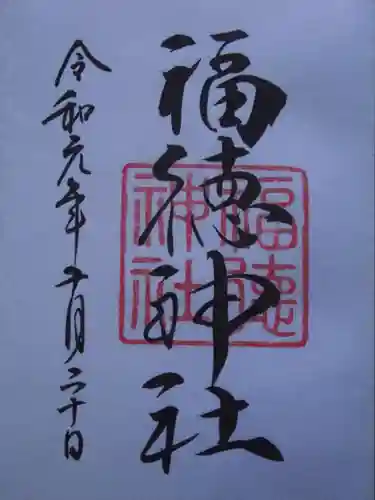 福徳神社
令和元年十月二十日
福徳
神社